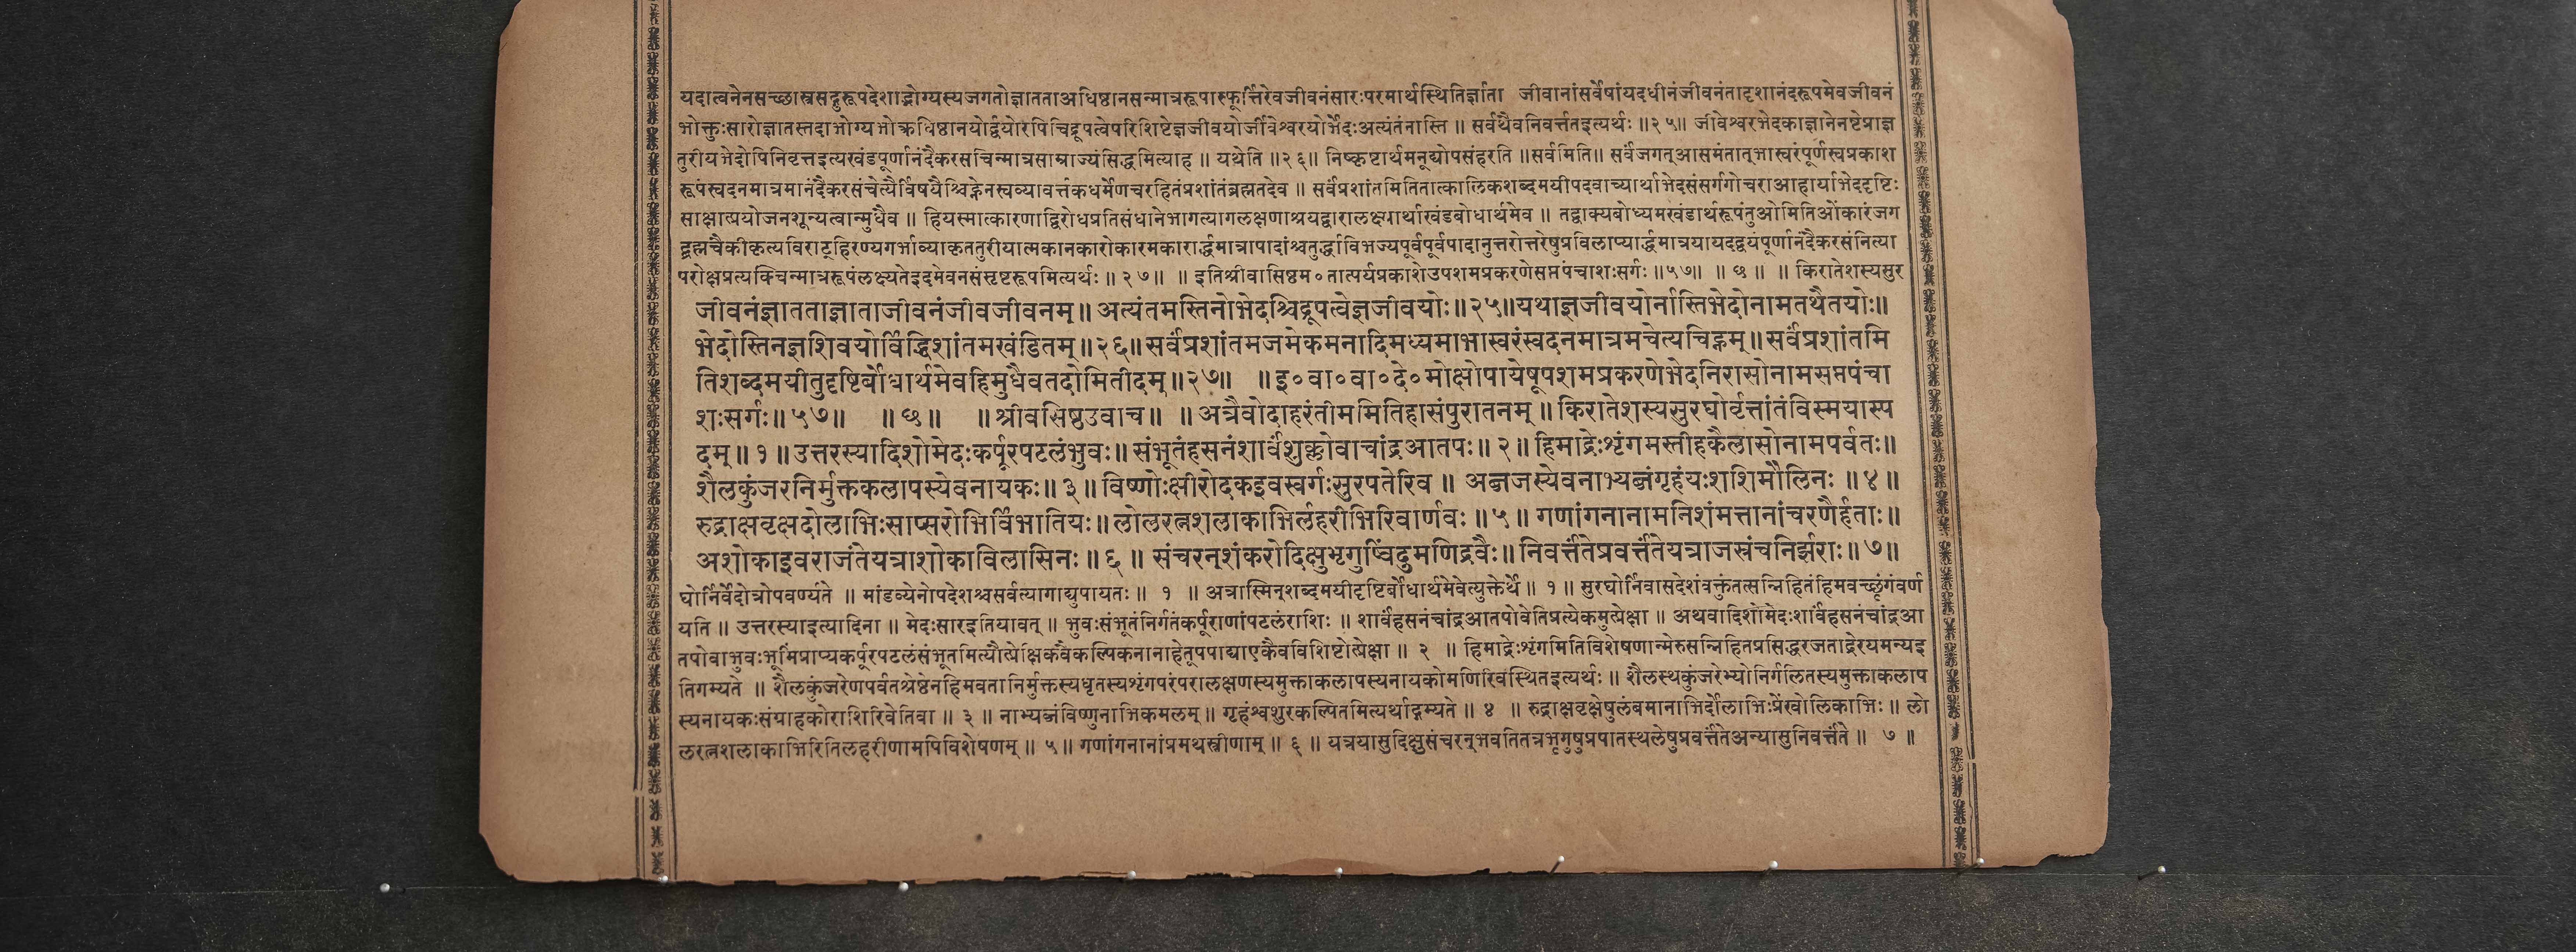 यदात्वनेनसच्छास्त्रसद्गुरूपदेशाद्भोग्यस्यजगतोज्ञातताअधिष्ठानसन्मात्ररूपास्फूर्त्तिरेवजीवनंसारःपरमार्थस्थितिर्ज्ञाता जीवानांसर्वेषांयदधीनंजीवनंतादृशानंदरूपमेवजीवनं
भोक्तुःसारोज्ञातस्तदाभोग्यभोक्त्रधिष्ठानयोर्द्वयोरपिचिद्रूपत्वेपरिशिष्टेज्ञजीवयोर्जीवेश्वरयोर्भेदःअत्यंतंनास्ति ॥ सर्वथैवनिवर्त्ततइत्यर्थः ॥२५॥ जीवेश्वरभेदकाज्ञानेनष्टेप्राज्ञ
तुरीयभेदोपिनिवृत्तइत्यखंडपूर्णानंदैकरसचिन्मात्रसाम्राज्यंसिद्धमित्याह ॥ यथेति ॥२६॥ निष्कृष्टार्थमनूद्योपसंहरति ॥सर्वमिति॥ सर्वंजगत्आसमंतात्भास्वरंपूर्णस्वप्रकाश
रूपंस्वदनमात्रमानंदैकरसंचेत्यैर्विषयैश्चिह्नेनस्वव्यावर्त्तकधर्मेणचरहितंप्रशांतंब्रह्मतदेव ॥ सर्वंप्रशांतमितितात्कालिकशब्दमयीपदवाच्यार्थाभेदसंसर्गगोचराआहार्याभेददृष्टिः
साक्षात्प्रयोजनशून्यत्वान्मुधैव ॥ हियस्मात्कारणाद्विरोधप्रतिसंधानेभागत्यागलक्षणाश्रयद्वारालक्ष्यार्थाखंडबोधार्थमेव ॥ तद्वाक्यबोध्यमखंडार्थरूपंतुओमितिओंकारंजग
द्ब्रह्मचैकीकृत्यविराट्हिरण्यगर्भाव्याकृततुरीयात्मकानकारोकारमकारार्द्धमात्रापादांश्चतुर्द्धाविभज्यपूर्वपूर्वपादानुत्तरोत्तरेषुप्रविलाप्यार्द्धमात्रयायदद्वयंपूर्णानंदैकरसंनित्या
परोक्षप्रत्यक्चिन्मात्ररूपंलक्ष्यतेइदमेवनसंसृष्टरूपमित्यर्थः ॥ २७॥ ॥ इतिश्रीवासिष्ठम०तात्पर्यप्रकाशेउपशमप्रकरणेसप्तपंचाशःसर्गः ॥५७॥ ॥ छ ॥ ॥ किरातेशस्यसुर
जीवनंज्ञातताज्ञाताजीवनंजीवजीवनम्॥ अत्यंतमस्तिनोभेदश्चिद्रूपत्वेज्ञजीवयोः॥२५॥यथाज्ञजीवयोर्नास्तिभेदोनामतथैतयोः॥
भेदोस्तिनज्ञशिवयोर्विद्धिशांतमखंडितम्॥२६॥सर्वंप्रशांतमजमेकमनादिमध्यमाभास्वरंस्वदनमात्रमचेत्यचिह्नम्॥सर्वंप्रशांतमि
तिशब्दमयीतुदृष्टिर्बोधार्थमेवहिमुधैवतदोमितीदम्॥२७॥ ॥इ०वा०वा०दे०मोक्षोपायेषूपशमप्रकरणेभेदनिरासोनामसप्तपंचा
शःसर्गः॥५७॥ ॥छ॥ ॥श्रीवसिष्ठउवाच॥ ॥अत्रैवोदाहरंतीममितिहासंपुरातनम्॥किरातेशस्यसुरघोर्वृत्तांतंविस्मयास्प
दम्॥१॥उत्तरस्यादिशोमेदःकर्पूरपटलंभुवः॥संभूतंहसनंशार्वंशुक्लोवाचांद्रआतपः॥२॥हिमाद्रेःशृंगमस्तीहकैलासोनामपर्वतः॥
शैलकुंजरनिर्मुक्तकलापस्येवनायकः॥३॥विष्णोःक्षीरोदकइवस्वर्गःसुरपतेरिव॥ अब्जजस्येवनाभ्यब्जंगृहंयःशशिमौलिनः॥४॥
रुद्राक्षवृक्षदोलाभिःसाप्सरोभिर्विभातियः॥लोलरत्नशलाकाभिर्लहरीभिरिवार्णवः॥५॥ गणांगनानामनिशंमत्तानांचरणैर्हताः॥
अशोकाइवराजंतेयत्राशोकाविलासिनः॥६॥ संचरन्शंकरोदिक्षुभृगुष्विंदुमणिद्रवैः॥निवर्त्तंतेप्रवर्त्तंतेयत्राजस्रंचनिर्झराः॥७॥
घोर्निर्वेदोत्रोपवर्ण्यते ॥ मांडव्येनोपदेशश्चसर्वत्यागाद्युपायतः॥ १ ॥ अत्रास्मिन्शब्दमयीदृष्टिर्बोधार्थमेवेत्युक्तेर्थे॥ १॥ सुरघोर्निवासदेशंवक्तुंतत्सन्निहितंहिमवच्छृंगंवर्ण
यति॥ उत्तरस्याइत्यादिना॥ मेदःसारइतियावत्॥ भुवःसंभूतंनिर्गतंकर्पूराणांपटलंराशिः॥ शार्वंहसनंचांद्रआतपोवेतिप्रत्येकमुत्प्रेक्षा॥ अथवादिशोमेदःशार्वंहसनंचांद्रआ
तपोवाभुवःभूमिंप्राप्यकर्पूरपटलंसंभूतमित्यौत्प्रेक्षिकवैकल्पिकनानाहेतूपपाद्याएकैवविशिष्टोत्प्रेक्षा॥ २ ॥ हिमाद्रेःशृंगमितिविशेषणान्मेरुसन्निहितप्रसिद्धरजताद्रेरयमन्यइ
तिगम्यते ॥ शैलकुंजरेणपर्वतश्रेष्ठेनहिमवतानिर्मुक्तस्यधृतस्यशृंगपरंपरालक्षणस्यमुक्ताकलापस्यनायकोमणिरिवस्थितइत्यर्थः॥ शैलस्थकुंजरेभ्योनिर्गलितस्यमुक्ताकलाप
स्यनायकःसंग्राहकोराशिरिवेतिवा ॥ ३ ॥ नाभ्यब्जंविष्णुनाभिकमलम्॥ गृहंश्वशुरकल्पितमित्यर्थाद्गम्यते॥ ४ ॥ रुद्राक्षवृक्षेषुलंबमानाभिर्दोलाभिःप्रेंखोलिकाभिः॥ लो
लरत्नशलाकाभिरितिलहरीणामपिविशेषणम्॥ ५॥ गणांगनानांप्रमथस्त्रीणाम्॥ ६॥ यत्रयासुदिक्षुसंचरन्भवतितत्रभृगुषुप्रपातस्थलेषुप्रवर्त्तंतेअन्यासुनिवर्त्तंते॥ ७॥